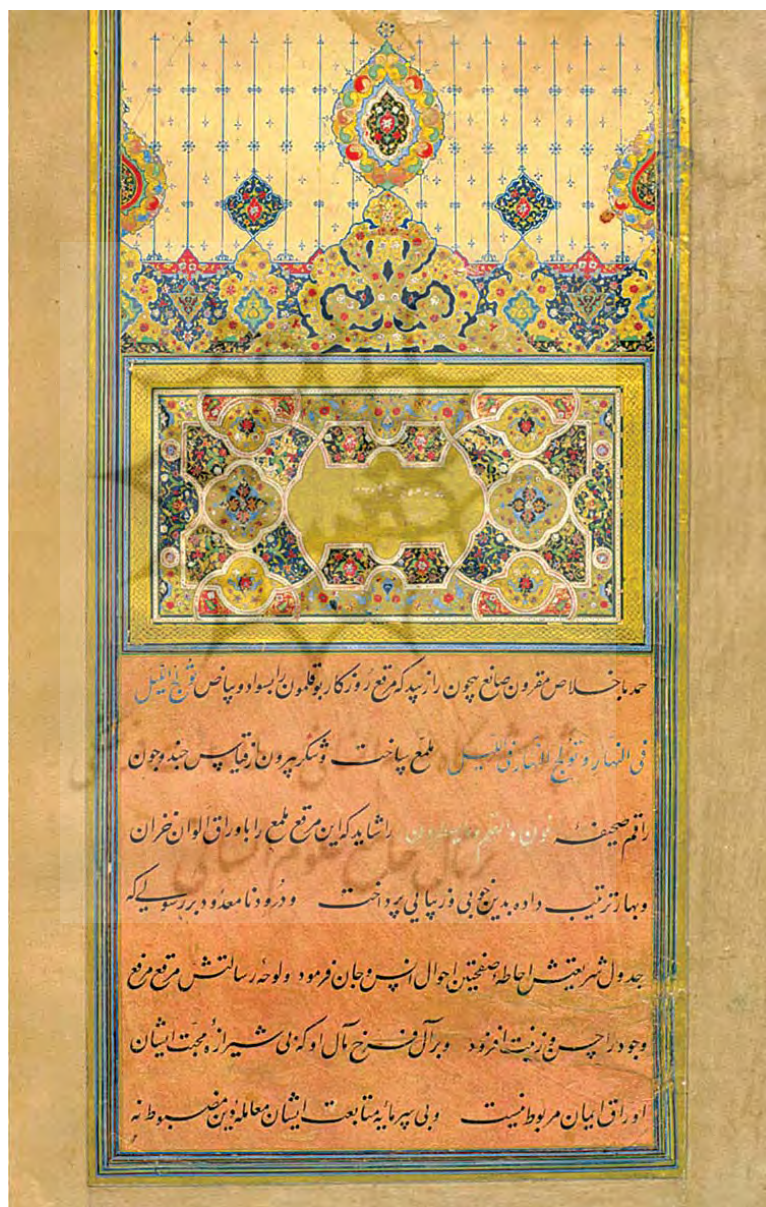 حمد با خلاص مقرون صانع بیچون را زیبد که مرقع روزگار بوقلمون را بسواد و بیاض تولج اللیل
فی النهار و تولج النهار فی اللیل ملمع ساخت و شکر بیرون از قیاس بیچند و چون
راقم صحیفهٔ نون والقلم وما یسطرون را شاید که این مرقع ملمع را باوراق الوان خزان
و بهار ترتیب داده بدین خوبی و زیبایی پرداخت و درود نامعدود بر رسولی که
جدول شریعتش احاطهٔ صفحتین احوال انس و جان فرمود و لوحهٔ رسالتش مرقع مرفع
وجود را حسن و زینت افزود و بر آل فرخ مآل او که بی شیرازهٔ محبت ایشان
اوراق ایمان مربوط نیست و بی سرمایهٔ متابعت ایشان معاملهٔ دین مضبوط نه
پرتال جامع علوم انسانی